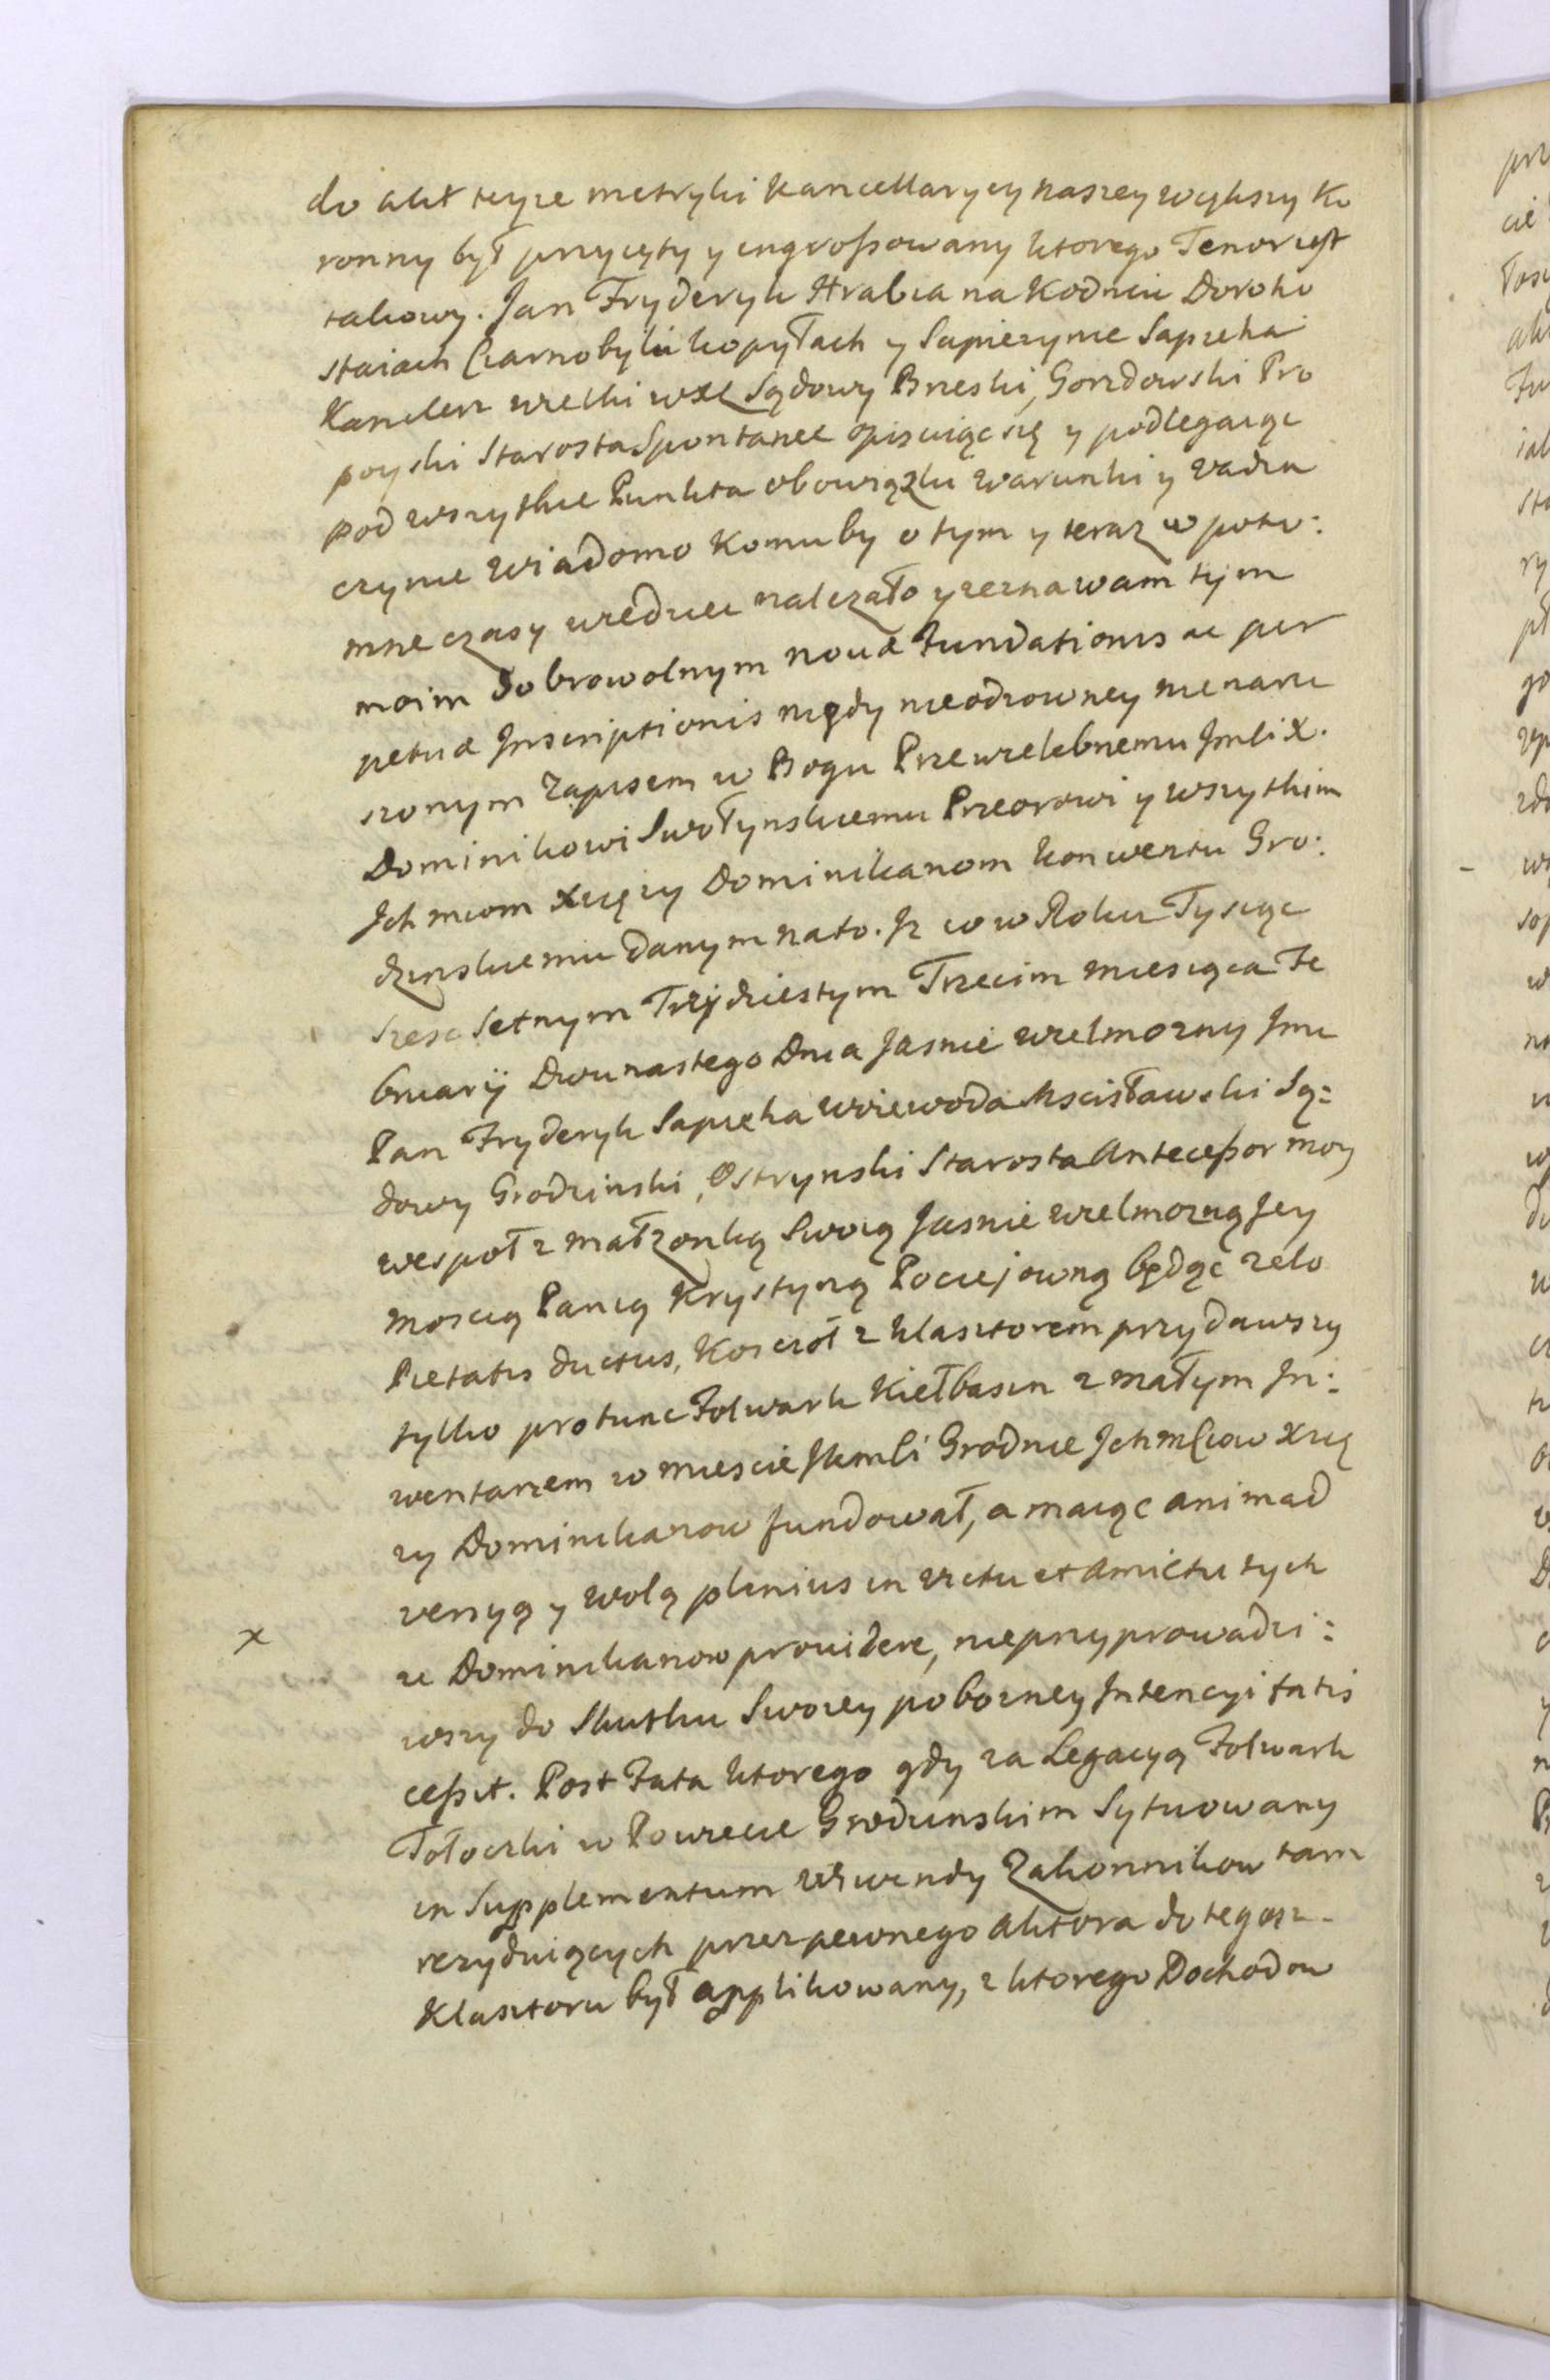 do akt teyze metryki kancellaryey naszey większy Ko
ronny był przyięty y ingrossowany ktorego Tenor iest
takowy. Jan Fryderyk Hrabia na Kodniu Doroho
staiach Czarnobylu kopyłach y Sapiezynie Sapieha
Kanclerz wielki wXL Sądowy Brzeski, Gorzdowski Pro
poyski Starosta Spontanee opisuiąc się y podlegaiąc
pod wszytkie Punkta obowiązku warunki y zadra
czynie wiadomo komu by o tym y teraz w poto:
mne czasy wiedziec nalezało yzeznawam tym
moim dobrowolnym nouæ Fundationis ac per
petuæ Inscriptionis nigdy nieodzowney nienaru
szonym zapisem w Bogu Przewielebnemu Jmci X.
Dominikowi Swołynskiemu Przeorowi y wszytkim
Jch mciom Xięzy Dominikanom konwentu Gro:
dzinskiemu danym na to. Jz co w Roku Tysiąc
szesc Setnym Trzydziestym Trzecim miesiąca Fe
bruarÿ Dwunastego Dnia Jasnie wielmozny Jmc
Pan Fryderyk Sapieha woiewoda Mscisławski Są:
dowy Grodzinski, Ostrynski Starosta Antecessor moy
wespoł z małzonką Swoią Jasnie wielmozną Jey
moscią Panią Krystyną Pociejowną będąc zelo
Pietatis ductus, Koscioł z klasztorem przydawszy
tylko pro tunc Folwark Kiełbasin z małym In:
wentarzem w miescie JKmCi Grodnie Jchmściow Xię
zy Dominikanow fundował, a maiąc animad
versyą y wolą plenius in victu et amictu tych
ze Dominikanow prouidere, nieprzyprowadzi:
wszy do Skutku Swoiey pobozney Intencyi fatis
cessit. Post Fata ktorego gdy za Legacyą Folwark
Tołoczki w Powiecie Grodzinskim Sytuowany
in Supplementum wiwendy Zakonnikow tam
rezyduiących przez pewnego aktora do tegosz-
Klasztoru był applikowany, z ktorego Dochodow
x